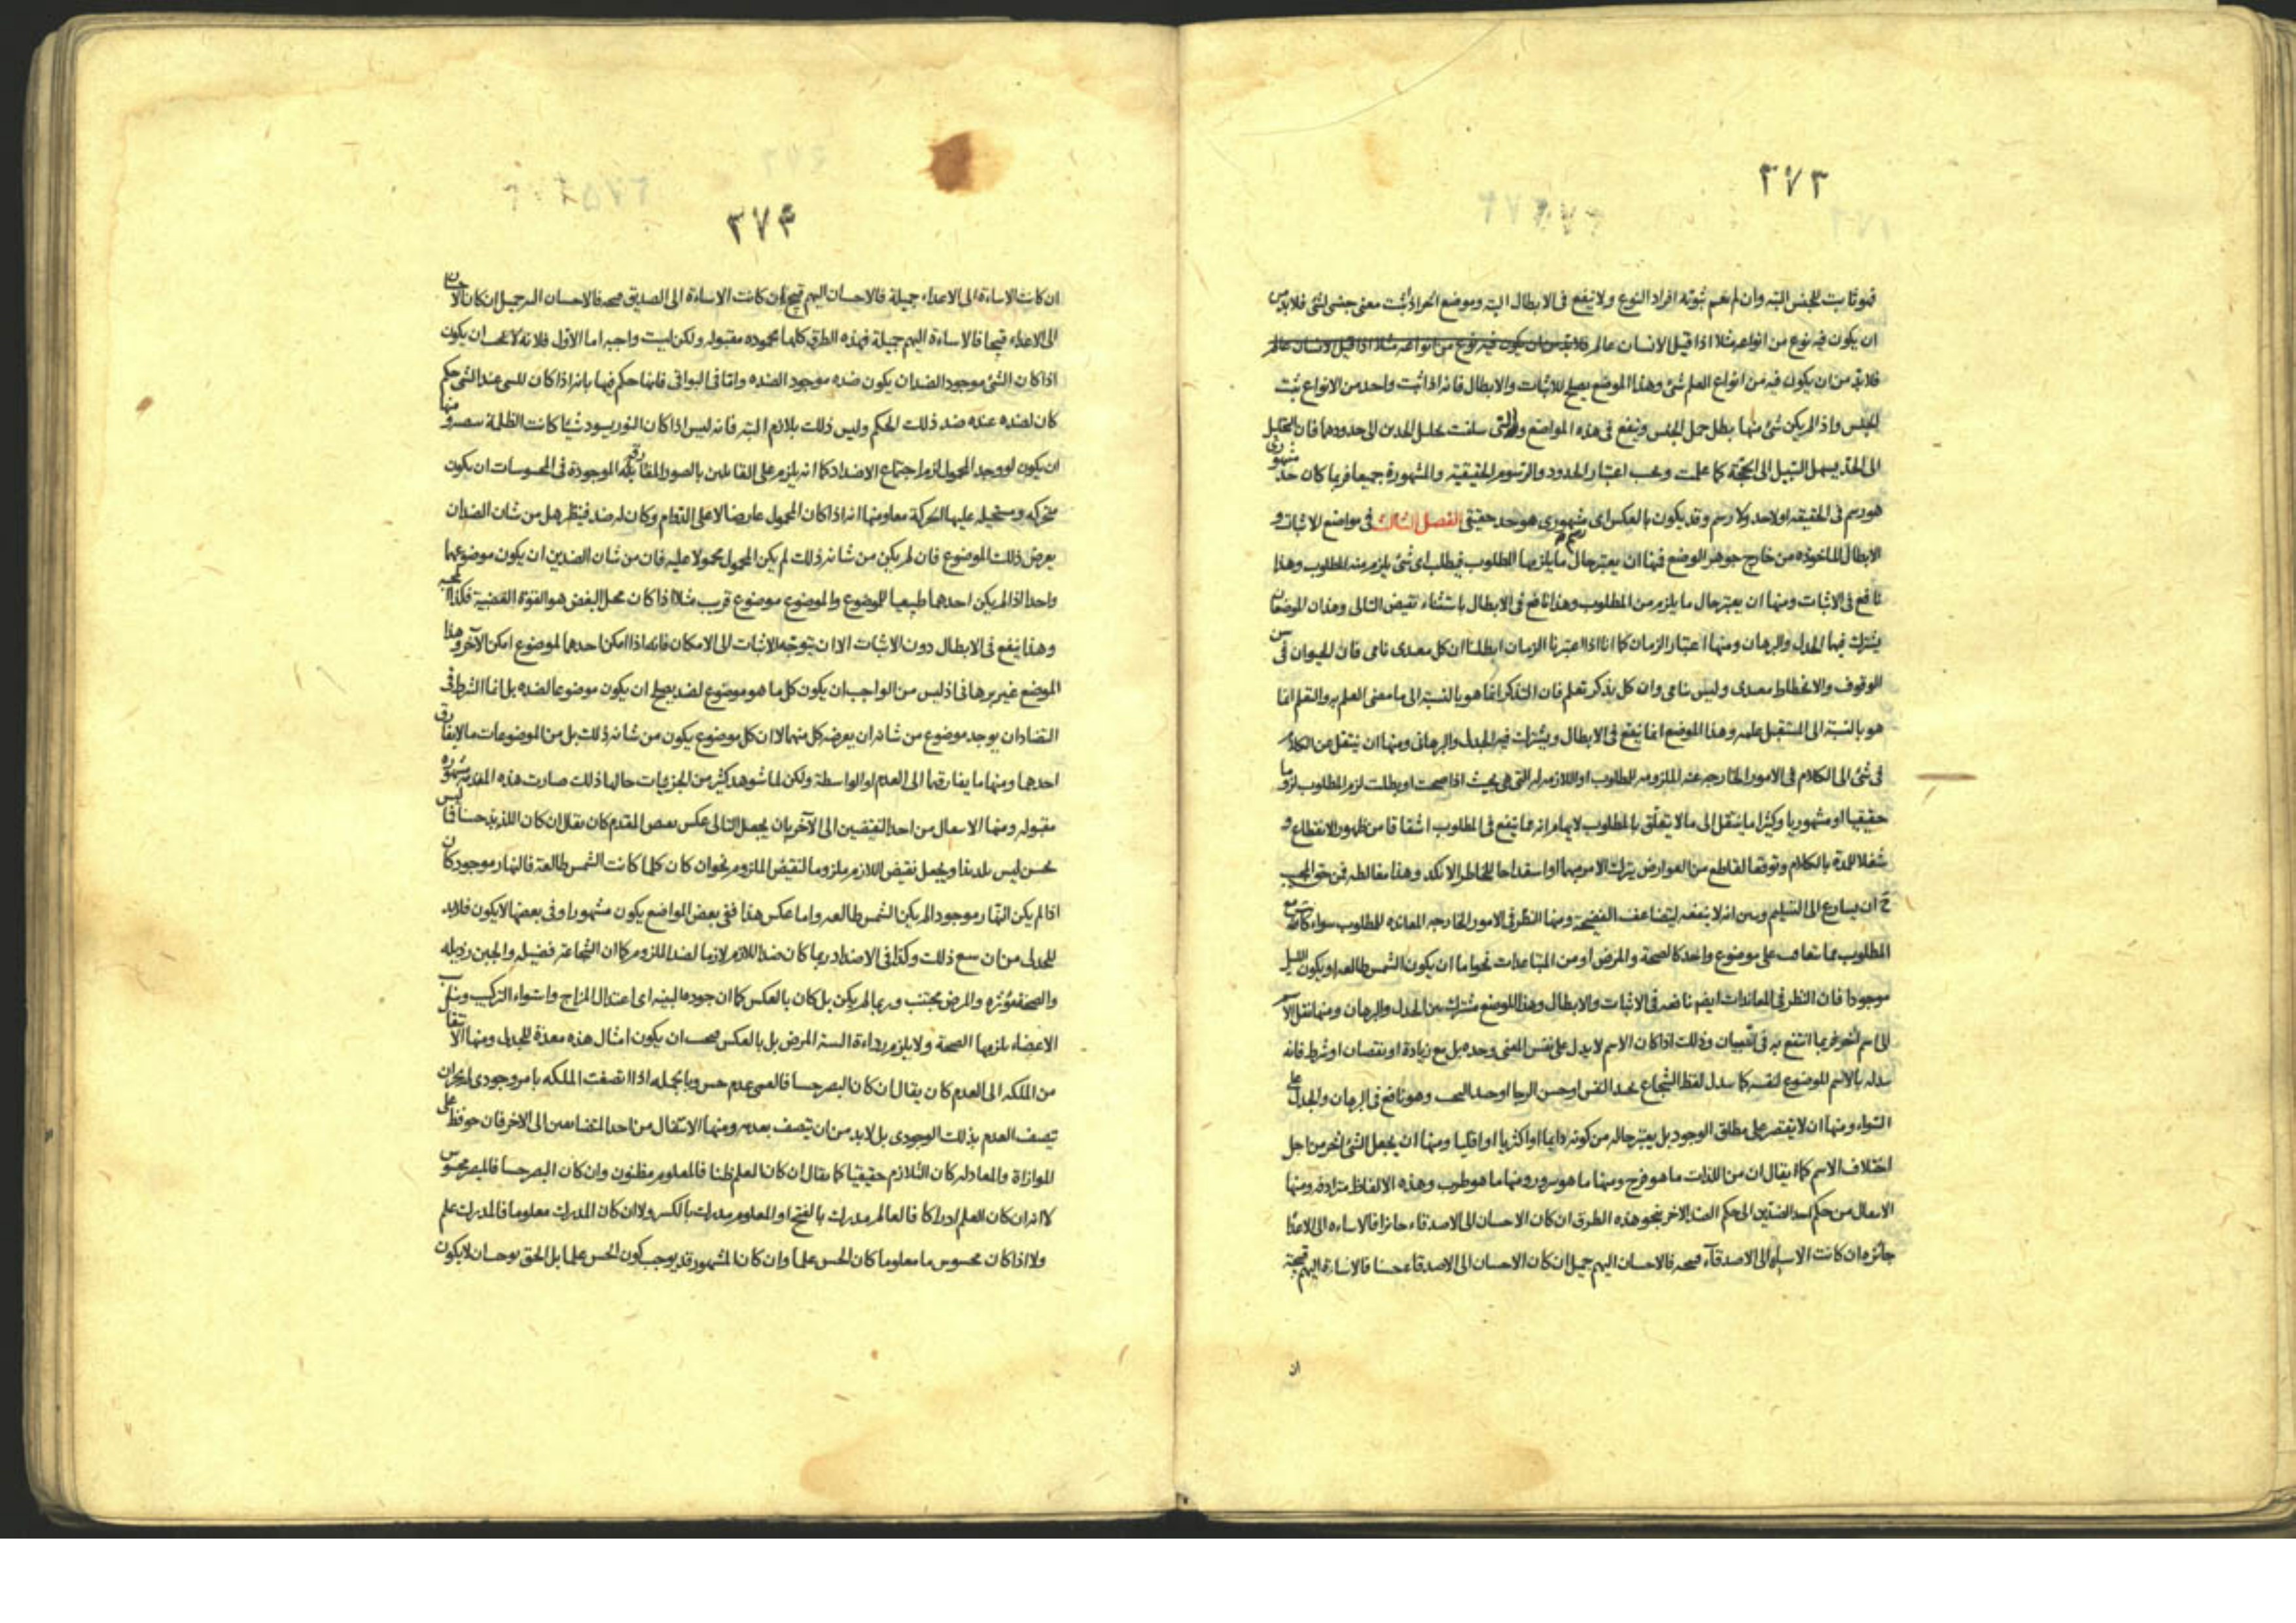 ٣٧٣
فهو ثابت للجنس البتة وان لم يعم ثبوته افراد النوع ولا ينفع فى الابطال البته وموضع اخر اذا ثبت معنى جنس لشئ فلابد من
ان يكون فيه نوع من انواعه مثلا اذا قيل الانسان عالم فلابد من ان يكون فيه نوع من انواعه مثلا اذا قيل الانسان عالم
فلابد من ان يكون فيه من انواع العلم شئ وهذا الموضع يصلح للاثبات والابطال فانه اذا ثبت واحد من الانواع ثبت
الجنس واذا لم يكن شئ منها بطل حمل الجنس وينفع فى هذه المواضع والتى سلفت تحليل الحدين الى حدودها فان التحليل
الى الحد يسهل السبيل الى الحجة كما علمت ويجب اعتبار الحدود والرسوم الحقيقية والمشهورة جميعا فربما كان حد مشهورى
هو رسم فى الحقيقه او لا حد ولا رسم وقد يكون بالعكس اى رسم مشهورى هو حد حقيقى الفصل الثالث فى مواضع الاثبات و
الابطال الماخوذه من خارج جوهر الوضع فمنها ان يعتبر حال ما يلزمها المطلوب فيطلب اى شئ يلزم منه المطلوب وهذا
نافع فى الاثبات ومنها ان يعتبر حال ما يلزم من المطلوب وهذا نافع فى الابطال باستثناء نقيض التالى وهذان الموضعان
يشترك فيها الجدل والبرهان ومنها اعتبار الزمان كما انا اذا اعتبرنا الزمان ابطلنا ان كل مغتدى نامى فان الحيوان فى سن
الوقوف والانحطاط مغتدى وليس نامى وان كل يذكر تعلم فان التذكر انما هو بالنسبة الى ما مضى العلم به والتعلم انما
هو بالنسبة الى المستقبل علمه وهذا الموضع انما ينفع فى الابطال ويشترك فيه الجدل والبرهان ومنها ان ينتقل من الكلام
فى شئ الى الكلام فى الامور الخارجه عنه الملزومه للطلوب او اللازمه له التى هى بحيث اذا صحت او بطلت لزم المطلوب لزوما
حقيقيا او مشهوريا وكثيرا ما ينتقل الى ما لا يتعلق بالمطلوب لايهام انه مما ينفع فى المطلوب اشفاقا من ظهور الانقطاع و
شغلا للمدة بالكلام وتوقعا لقاطع من العوارض يترك الامر مبهما او استقداحا للخاطر الانكد وهذا مغالطه فمن حق المجيب
ح ان يسارع الى التسليم ويبين انه لا ينفعه ليتضاعف الفضيحة ومنها النظر فى الامور الخارجه المعانده للمطلوب سواء كانت مع
المطلوب مما يتعاقب على موضوع واحد كالصحة والمرض او من المتباعدات نحو اما ان يكون الشمس طالعه او يكون الليل
موجودا فان النظر فى المعاندات ايضم نافعه فى الاثبات والابطال وهذا الموضع مشترك بين الجدل والبرهان ومنها نقل الاسم
الى اسم اخر فربما انتفع به فى البيان وذلك اذا كان الاسم لا يدل على نفس المعنى وحده بل مع زيادة او نقصان او شرط فانه
يبدله بالاسم الموضوع لنفسه كما يبدل لفظ الشجاع بحد النفس او حسن الرجا او حد وهو نافع فى البرهان والجدل على
السواء ومنها ان لا يقتصر على مطلق الوجود بل يعتبر حاله من كونه دايما او اكثريا او اقليا ومنها ان يجعل الشئ اخر من اجل
اختلاف الاسم كما يقال ان من اللذات ما هو فرح ومنها ما هو سرور ومنها ما هو طرب وهذه الالفاظ مترادفه ومنها
الانتقال من حكم احد الضدين الى حكم الضد الاخر بنحو هذه الطرق ان كان الاحسان الى الاصدقاء جائزا فالاساءه الى الاعداء
جائزه ان كانت الاساءة الى الاصدقآء قبيحه فالاحسان اليهم جميل ان كان الاحسان الى الاصدقاء حسنا فالاساءة اليهم قبيحة
ان
٣٧۴
ان كانت الاساءة الى الاعداء جميلة فالاحسان اليهم قبيح ان كانت الاساءة الى الصديق قبيحه فالاحسان اليه جميل ان كان الاحسان
الى الاعداء قبيحا فالاساءة اليهم جميلة فهذه الطرق كلها محموده مقبوله ولكن ليست واجبه اما الاول فلانه لا يجب ان يكون
اذا كان الشئ موجود الضد ان يكون ضده موجود الضده واما فى البواقى فانما حكم فيها بانه اذا كان للشئ عند الشئ حكم
كان لضده عنده ضد ذلك الحكم وليس ذلك بلازم البته فانه ليس اذا كان النور يسود شيئا كانت الظلمة تبيضه ومنها
ان يكون لو وجد المحمول لزم اجتماع الاضداد كما انه يلزم على القائلين بالصور المفارقه الموجودة فى المحسوسات ان يكون
متحركه ومستحيله عليها الحركة معا ومنها انه اذا كان المحمول عارضا لا على الدوام وكان له ضد فينظر هل من شان الضد ان
يعرض ذلك الموضوع فان لم يكن من شانه ذلك لم يكن المحمول محمولا عليه فان من شان الضدين ان يكون موضوعهما
واحدا اذا لم يكن احدهما طبيعيا للموضوع والموضوع موضوع قريب مثلا اذا كان محل البغض هو القوة الغضبية فكذا المحبه
وهذا ينفع فى الابطال دون الاثبات الا ان يتوجه الاثبات الى الامكان فانه اذا امكن احدهما لموضوع امكن الآخر وهذا
الموضع غير برهانى اذ ليس من الواجب ان يكون كل ما هو موضوع لضد يصلح ان يكون موضوعا لضده بل انما الشرط فى
التضاد ان يوجد موضوع من شانه ان يعرضه كل منهما لا ان كل موضوع يكون من شانه ذلك بل من الموضوعات ما لا يفارق
احدهما ومنها ما يفارقهما الى العدم او الواسطة ولكن لما شوهد كثير من الجزئيات حالها ذلك صارت هذه المقدمة مشهوره
مقبوله ومنها الانتقال من احد النقيضين الى الآخر بان يجعل التالى عكس نقيض المقدم كان يقال ان كان اللذيذ حسنا فما ليس
بحسن ليس بلذيذ او يجعل نقيض اللازم ملزوما لنقيض الملزوم نحو ان كان كلما كانت الشمس طالعة فالنهار موجود كان
اذا لم يكن النهار موجودا لم يكن الشمس طالعه واما عكس هذا ففى بعض المواضع يكون مشهورا وفى بعضها لا يكون فلابد
للجدلى من ان يتبع ذلك وكذا فى الاضداد ربما كان ضد اللازم لازما لضد الملزوم كما ان الشجاعة فضيله والجبن رذيله
والصحة مؤثره والمرض مجتنب وربما لم يكن بل كان بالعكس كما ان جودة البنيه اى اعتدال المزاج واستواء التركيب وتناسب
الاعضاء يلزمها الصحة ولا يلزم رداءة البنية المرض بل بالعكس فيجب ان يكون امثال هذه معدة للجدلى ومنها الانتقال
من الملكه الى العدم كان يقال ان كان البصر حسا فالعمى عدم حس وبالجمله اذا اتصفت الملكه بامر وجودى لم يجز ان
يتصف العدم بذلك الوجودى بل لابد من ان يتصف بعدمه ومنها الانتقال من احد المتضايفين الى الاخر فان حوفظ على
الموازاة والمعادله كان التلازم حقيقيا كما يقال ان كان العلم ظنا فالمعلوم مظنون وان كان البصر حسا فالمبصر محسوس
لا انه ان كان العلم ادراكا فالعالم مدرك بالفتح او المعلوم مدرك بالكسر ولا ان كان المدرك معلوما فالمدرك علم
ولا اذا كان محسوس ما معلوما كان الحس علما وان كان المشهور قد يوجب كون الحس علما بل الحق يوجب ان لا يكون